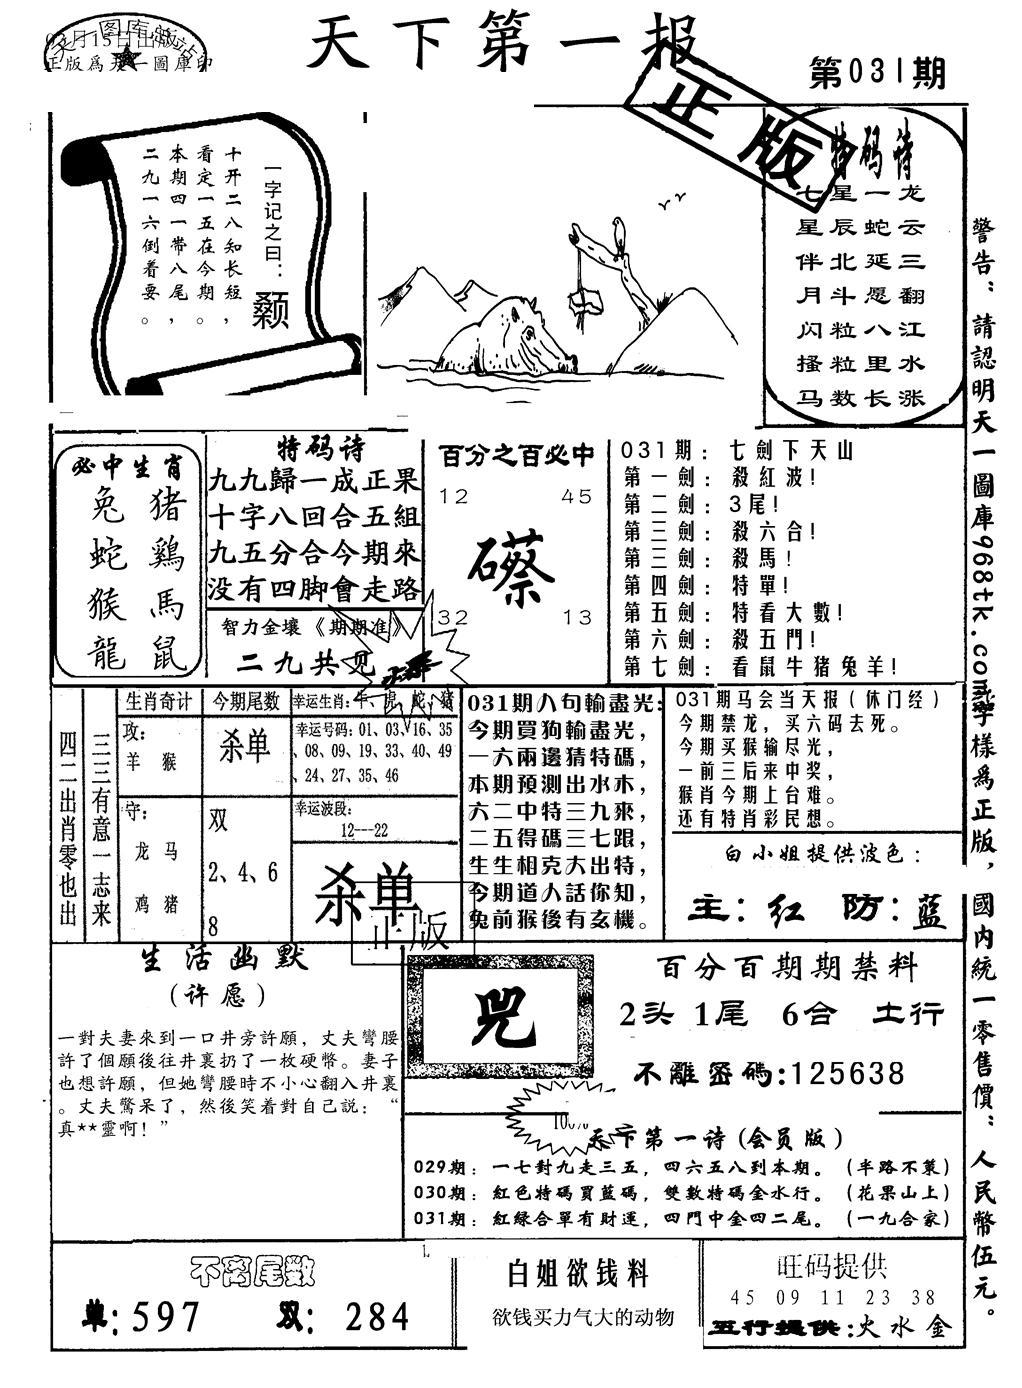 天下第一报
第031期
月15日出版
正版爲天一圖庫印
正版
一字记之曰：颡
十开二八知长短，
看定一五在今期。
本期四一带八尾，
二九一六倒着要。
特码诗
七星一龙
星辰蛇云
伴北延三
月斗愿翻
闪粒八江
搔粒里水
马数长涨
警告：請認明天一圖庫968tk.com字樣爲正版，國内統一零售價：人民幣伍元。
必中生肖
兔 猪
蛇 鷄
猴 馬
龍 鼠
特码诗
九九歸一成正果
十字八回合五組
九五分合今期來
没有四脚會走路
智力金壤《期期准》
二九共见
百分之百必中
12 45
礤
32 13
031期：七劍下天山
第一劍：殺紅波！
第二劍：3尾！
第三劍：殺六合！
第三劍：殺馬！
第四劍：特單！
第五劍：特看大數！
第六劍：殺五門！
第七劍：看鼠牛猪兔羊！
四二出肖零也出
三三有意一志来
生肖奇计
攻：
羊 猴
守：
龙 马
鸡 猪
今期尾数
杀单
双
2、4、6
8
幸运生肖：牛、虎、蛇、猪
幸运号码：01、03、16、35
、08、09、19、33、40、49
、24、27、35、46
幸运波段：
12---22
杀单
正版
031期八句輸盡光：
今期買狗輸盡光，
一六兩邊猜特碼，
本期預測出水木，
六二中特三九來，
二五得碼三七跟，
生生相克大出特，
今期道人話你知，
兔前猴後有玄機。
031期马会当天报（休门经）
今期禁龙，买六码去死。
今期买猴输尽光，
一前三后来中奖，
猴肖今期上台难。
还有特肖彩民想。
白小姐提供波色：
主：红 防：蓝
生活幽默
（许愿）
一對夫妻來到一口井旁許願，丈夫彎腰
許了個願後往井裏扔了一枚硬幣。妻子
也想許願，但她彎腰時不小心翻入井裏
。丈夫驚呆了，然後笑着對自己説：“
真**靈啊！”
咒
百分百期期禁料
2头 1尾 6合 土行
不離密碼:125638
100%
天下第一诗(会员版)
029期：一七對九走三五，四六五八到本期。（半路不策）
030期：紅色特碼買藍碼，雙數特碼金水行。（花果山上）
031期：紅緑合單有財運，四門中金四二尾。（一九合家）
不离尾数
单：597 双：284
白姐欲钱料
欲钱买力气大的动物
旺码提供
45 09 11 23 38
五行提供:火水金